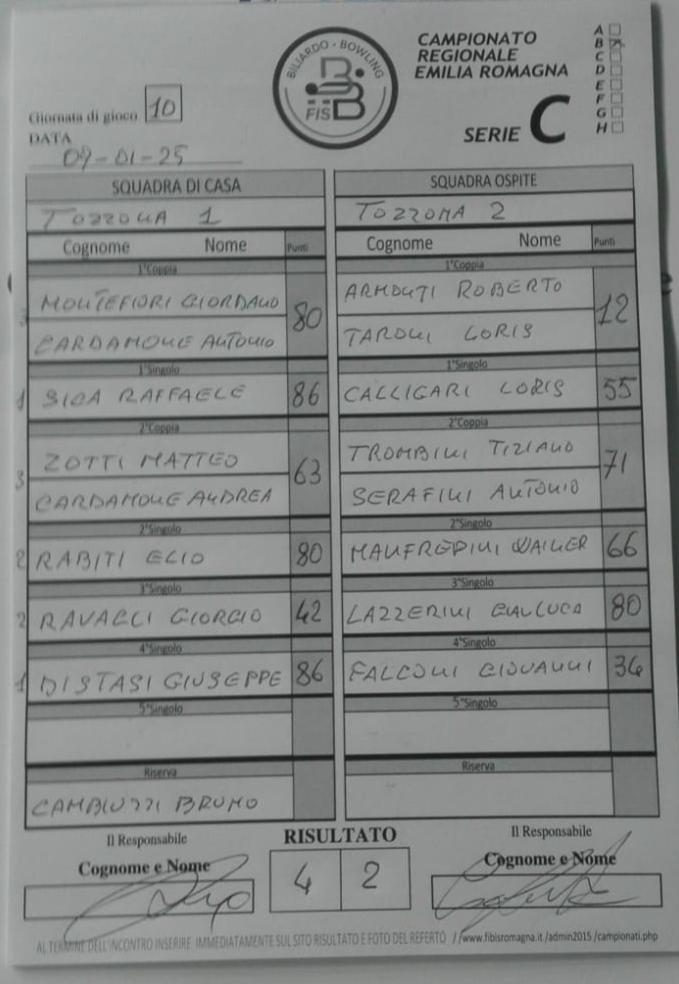 BILIARDO - BOWLING
FISBB
CAMPIONATO
REGIONALE
EMILIA ROMAGNA
SERIE C
A
B
C
D
E
F
G
H
Giornata di gioco 10
DATA
09-01-25
SQUADRA DI CASA
TOZZONA 1
Cognome Nome Punti
1°Coppia
3 MONTEFIORI GIORDANO 80
CARDAMONE ANTONIO
1°Singolo
1 SIOA RAFFAELE 86
2°Coppia
3 ZOTTI MATTEO 63
CARDAMONE ANDREA
2°Singolo
2 RABITI ELIO 80
3°Singolo
2 RAVAGLI GIORGIO 42
4°Singolo
1 DISTASI GIUSEPPE 86
5°Singolo
Riserva
CAMBIUZZI BRUNO
SQUADRA OSPITE
TOZZONA 2
Cognome Nome Punti
1°Coppia
ARMOUTI ROBERTO 12
TARONI LORIS
1°Singolo
CALLIGARI LORIS 55
2°Coppia
TROMBINI TIZIANO 71
SERAFINI ANTONIO
2°Singolo
MANFREDINI WALTER 66
3°Singolo
LAZZERINI GIANLUCA 80
4°Singolo
FALCONI GIOVANNI 34
5°Singolo
Riserva
Il Responsabile
Cognome e Nome
RISULTATO
4 2
Il Responsabile
Cognome e Nome
AL TERMINE DELL'INCONTRO INSERIRE IMMEDIATAMENTE SUL SITO RISULTATO E FOTO DEL REFERTO //www.fibisromagna.it /admin2015 /campionati.php